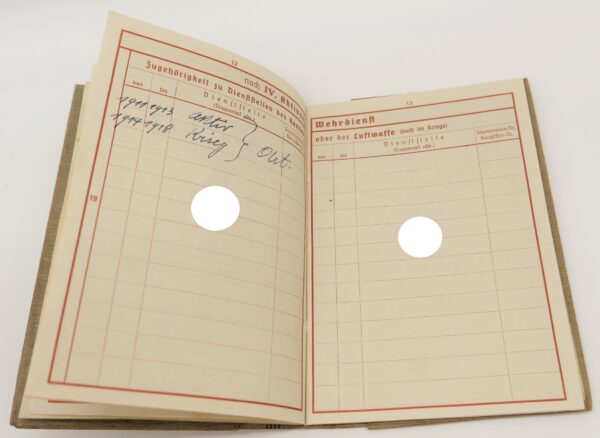 12
noch IV. Aktiver
Zugehörigkeit zu Dienststellen des Heeres
von
bis
Dienststelle
(Truppenteil usw.)
19
1911 1913 aktiv
1914 1918 Krieg } Obst.
13
Wehrdienst
oder der Luftwaffe (auch im Kriege)
von
bis
Dienststelle
(Truppenteil usw.)
Stammrollen-Nr.
Ranglisten-Nr.